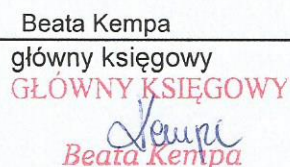 Beata Kempa
główny księgowy
GŁÓWNY KSIĘGOWY
Kempa
Beata Kempa